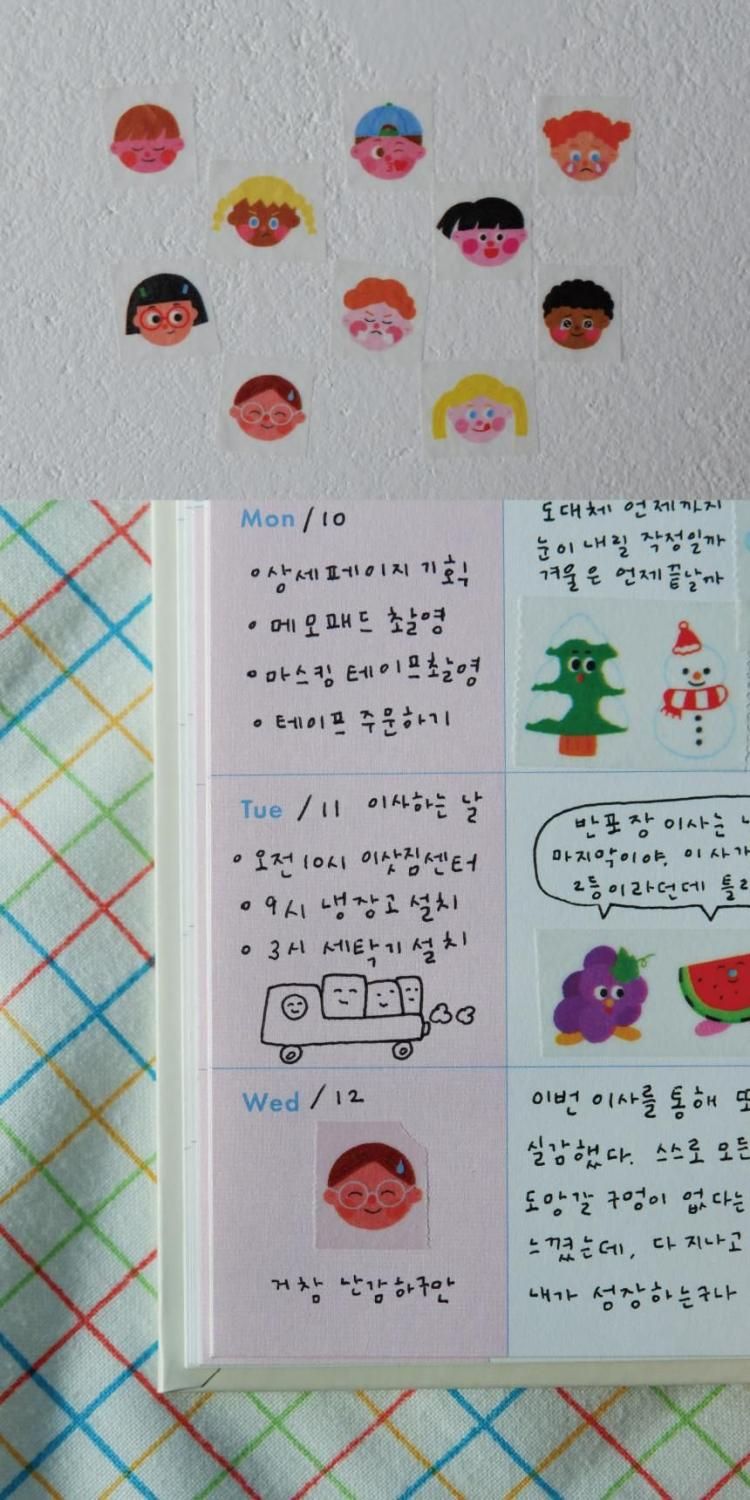 Mon / 10
상세페이지 기획
메모패드 촬영
마스킹 테이프 촬영
테이프 주문하기
도대체 언제까지
눈이 내릴 작정일까
겨울은 언제 끝날까
Tue / 11 이사하는 날
오전 10시 이삿짐센터
9시 냉장고 설치
3시 세탁기 설치
반포장 이사는
마지막이야. 이사가
2등이라던데
Wed / 12
거참 난감하구만
이번 이사를 통해 또
실감했다. 스스로 모든
도망갈 구멍이 없다는
느꼈는데, 다 지나고
내가 성장하는구나